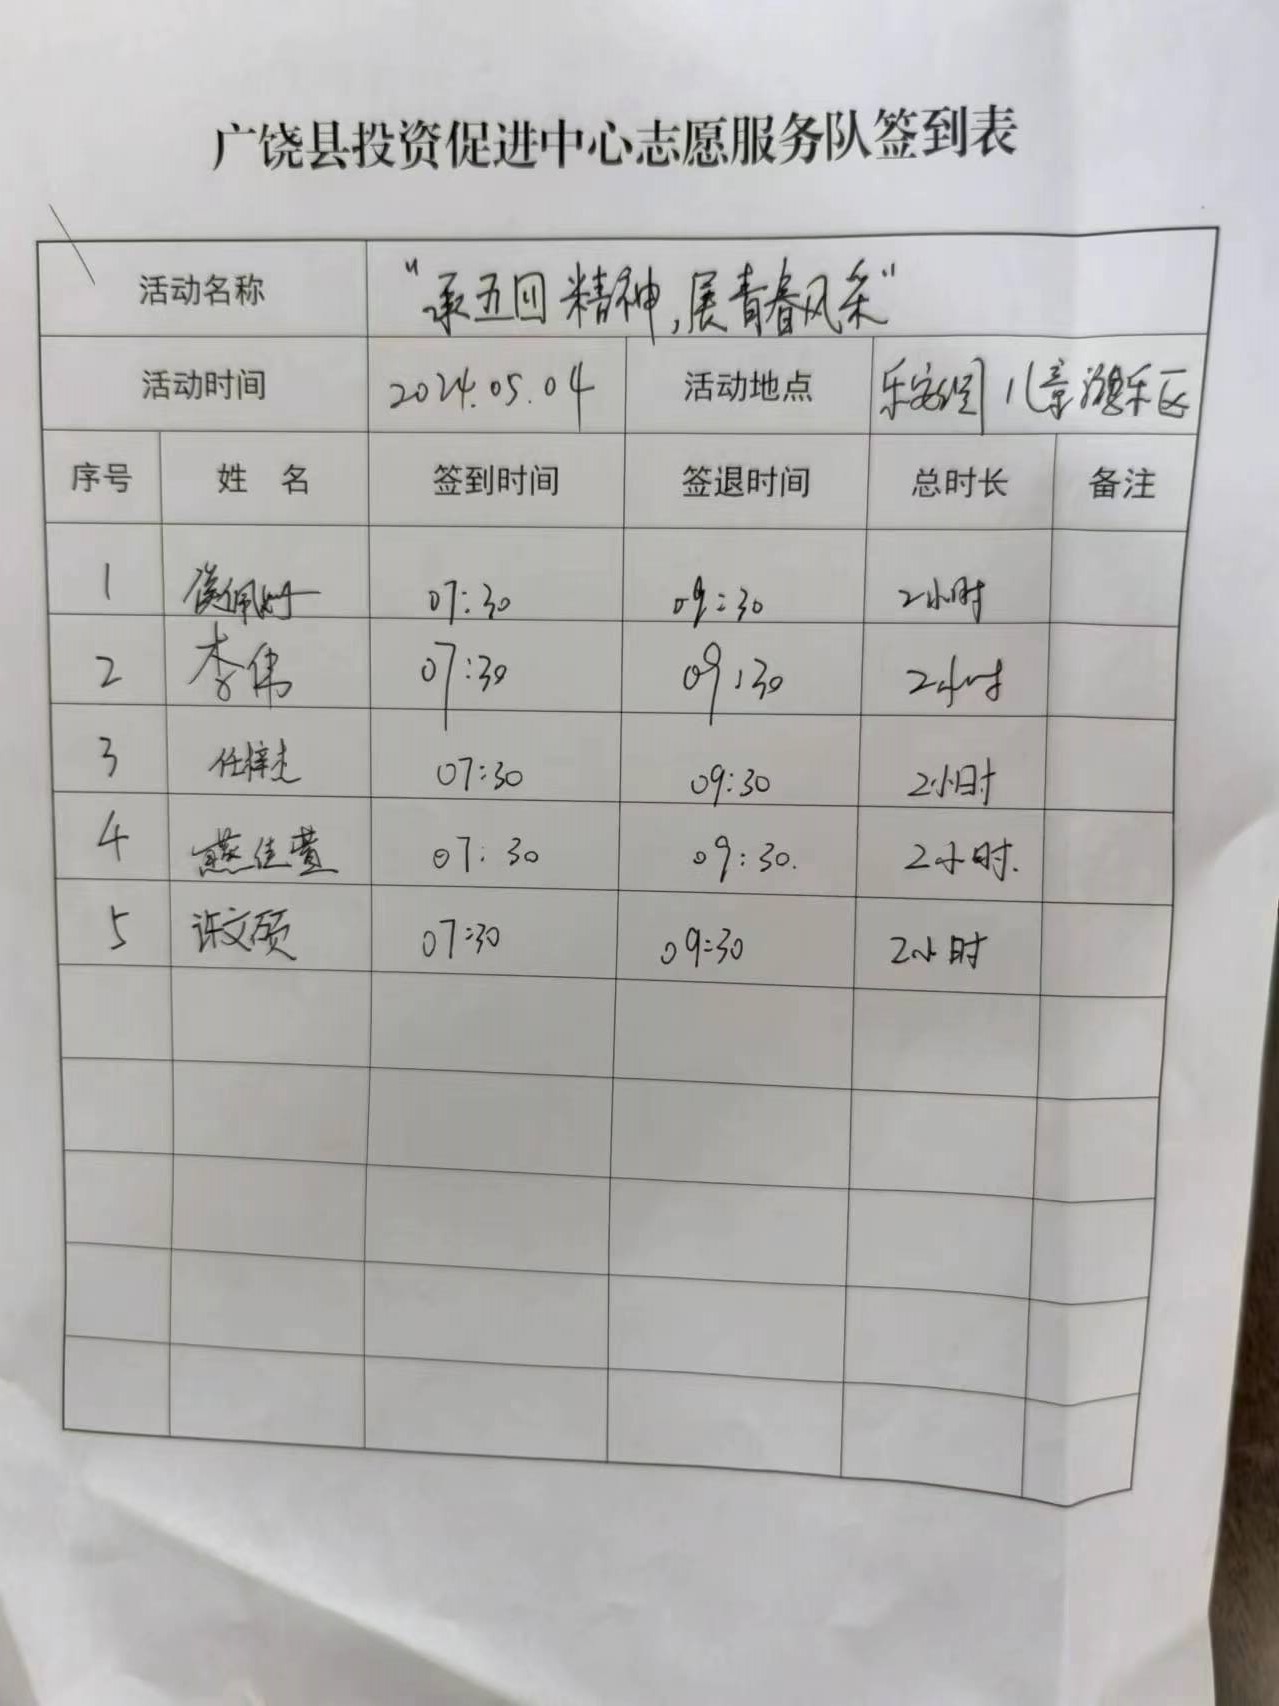 广饶县投资促进中心志愿服务队签到表
活动名称 “承五四精神,展青春风采”
活动时间 2024.05.04 活动地点 乐安公园儿童游乐区
序号 姓 名 签到时间 签退时间 总时长 备注
1 07:30 09:30 2小时
2 李伟 07:30 09:30 2小时
3 任梓杰 07:30 09:30 2小时
4 07:30 09:30. 2小时.
5 许文硕 07:30 09:30 2小时